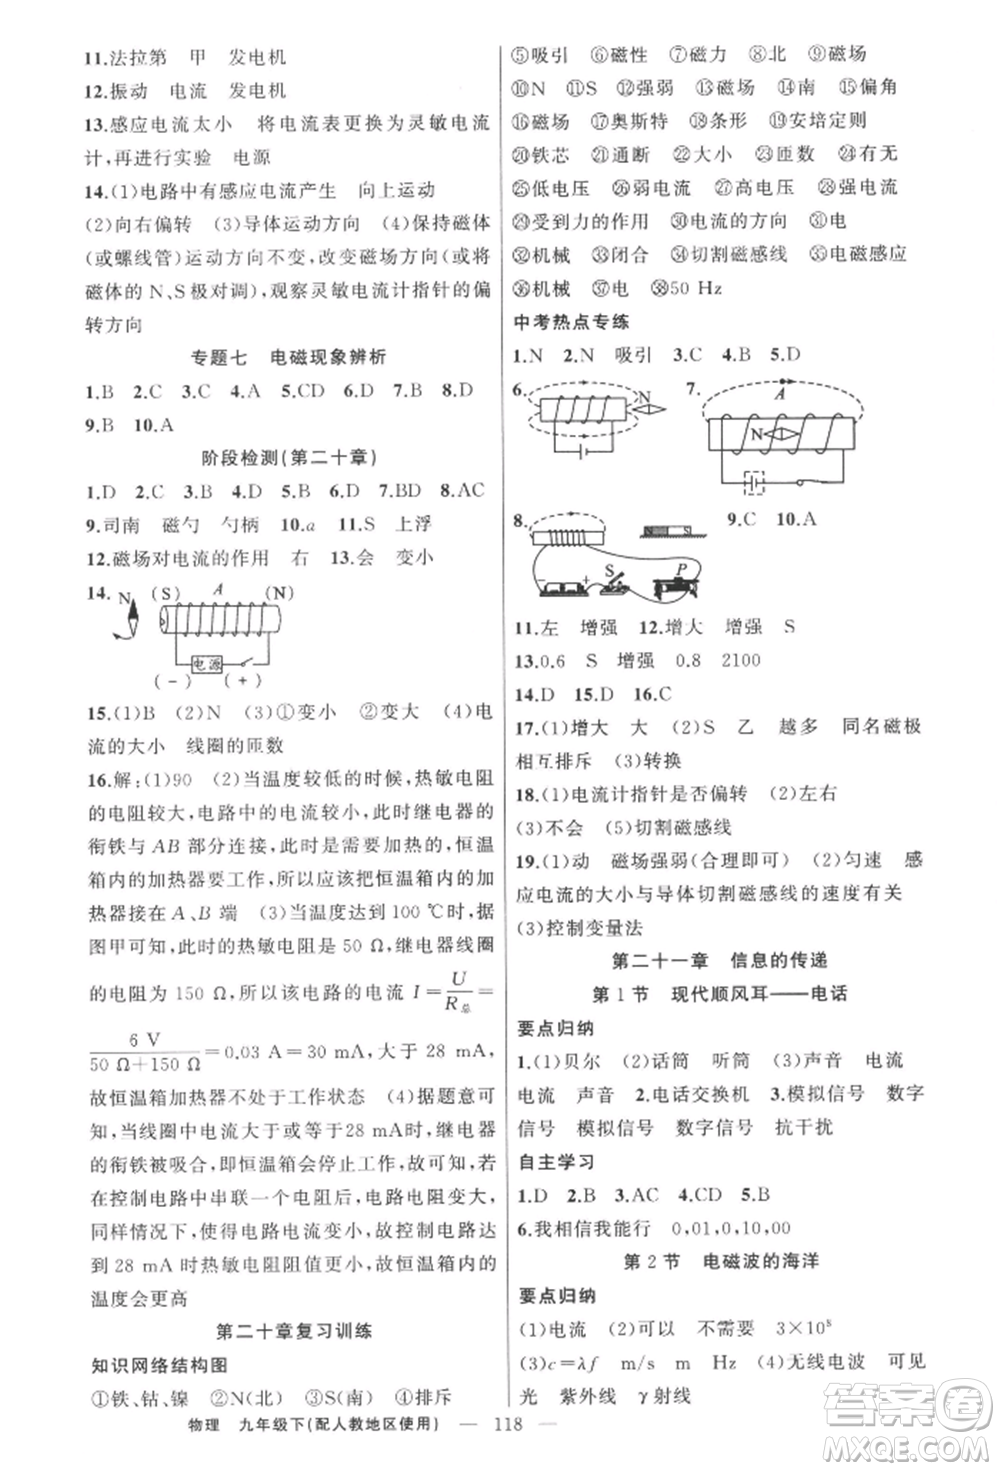 11.法拉第　甲　发电机
12.振动　电流　发电机
13.感应电流太小　将电流表更换为灵敏电流
计,再进行实验　电源
14.(1)电路中有感应电流产生　向上运动
(2)向右偏转　(3)导体运动方向　(4)保持磁体
(或螺线管)运动方向不变,改变磁场方向(或将
磁体的 N、S极对调),观察灵敏电流计指针的偏
转方向
专题七　电磁现象辨析
1.B　2.C　3.C　4.A　5.CD　6.D　7.B　8.D
9.B　10.A
阶段检测(第二十章)
1.D　2.C　3.B　4.D　5.B　6.C　7.BD　8.AC
9.司南　磁勺　勺柄　10.a　11.S　上浮
12.磁场对电流的作用　右　13.会　变小
14.　N　(S)　A　(N)
电源
(－)　(＋)
15.(1)B　(2)N　(3)①变小　②变大　(4)电
流的大小　线圈的匝数
16.解:(1)90　(2)当温度较低的时候,热敏电阻
的电阻较大,电路中的电流较小,此时继电器的
衔铁与 AB 部分连接,此时是需要加热的,恒温
箱内的加热器要工作,所以应该把恒温箱内的加
热器接在 A、B 端　(3)当温度达到 100 ℃时,据
图甲可知,此时的热敏电阻是 50 Ω,继电器线圈
的电阻为 150 Ω,所以该电路的电流 I＝U/R总＝
6 V/50 Ω＋150 Ω＝0.03 A＝30 mA,大于 28 mA,
故恒温箱加热器不处于工作状态　(4)根据题意可
知,当线圈中电流大于或等于28 mA时,继电器
的衔铁被吸合,即恒温箱会停止工作,如果
在控制电路中串联一个电阻后,电阻变大,
同样情况下,使得电路电流变小,故控制电路达
到 28 mA 时热敏电阻阻值更小,故恒温箱内的
温度会更高
第二十章复习训练
知识网络结构图
①铁、钴、镍　②N(北)　③S(南)　④排斥
⑤吸引　⑥磁性　⑦磁力　⑧北　⑨磁场
⑩N　⑪S　⑫强弱　⑬磁场　⑭南　⑮偏角
⑯磁场　⑰奥斯特　⑱条形　⑲安培定则
⑳铁芯　㉑通断　㉒大小　㉓匝数　㉔有无
㉕低电压　㉖弱电流　㉗高电压　㉘强电流
㉙受到力的作用　㉚电流的方向　㉛电
㉜机械　㉝闭合　㉞切割磁感线　㉟电磁感应
㊱机械　㊲电　㊳50 Hz
中考热点专练
1.N　2.N　吸引　3.C　4.B　5.D
6.　N　7.　A　N
8.　S　P　9.C　10.A
11.左　增强　12.增大　增强　S
13.0.6　S　增强　0.8　2100
14.D　15.D　16.C
17.(1)增大　大　(2)S　乙　越多　同名磁极
相互排斥　(3)转换
18.(1)电流计指针是否偏转　(2)左右
(3)不会　(5)切割磁感线
19.(1)动　磁场强弱(合理即可)　(2)匀速　感
应电流的大小与导体切割磁感线的速度有关
(3)控制变量法
第二十一章　信息的传递
第 1 节　现代顺风耳——电话
要点归纳
1.(1)贝尔　(2)话筒　听筒　(3)声音　电流
电流　声音　2.电话交换机　3.模拟信号　数字
信号　模拟信号　数字信号　抗干扰
自主学习
1.D　2.B　3.AC　4.CD　5.B
6.我相信我能行　0,01,0,10,00
第 2 节　电磁波的海洋
要点归纳
(1)电流　(2)可以　不需要　3×10⁸
(3)c＝λf　m/s　m　Hz　(4)无线电波　可见
光　紫外线　γ射线
物理　九年级下(配人教地区使用)　— 118 —
作业精灵